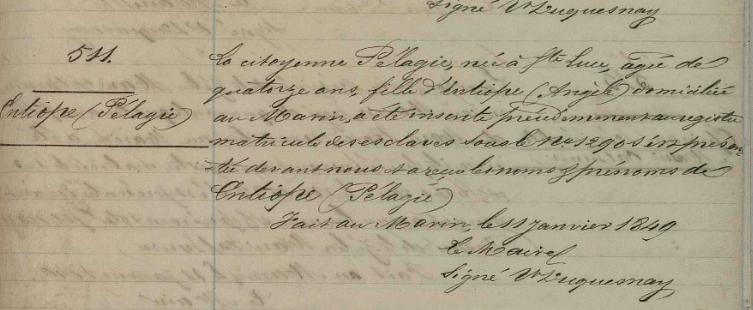 Signé Vr Duquesnay
511.
Entiope (Pélagie)
La citoyenne Pélagie, née à Ste Luce, agée de
quatorze ans, fille d'Entiope (Angèle) domiciliée
au Marin, a été inscrite précédemment au registre
matricule des esclaves sous le No 1290 s'est présen
tée devant nous & a reçu les noms & prénoms de
Entiope (Pélagie)
Fait au Marin, le 11 Janvier 1849
Le Maire
Signé Vr Duquesnay